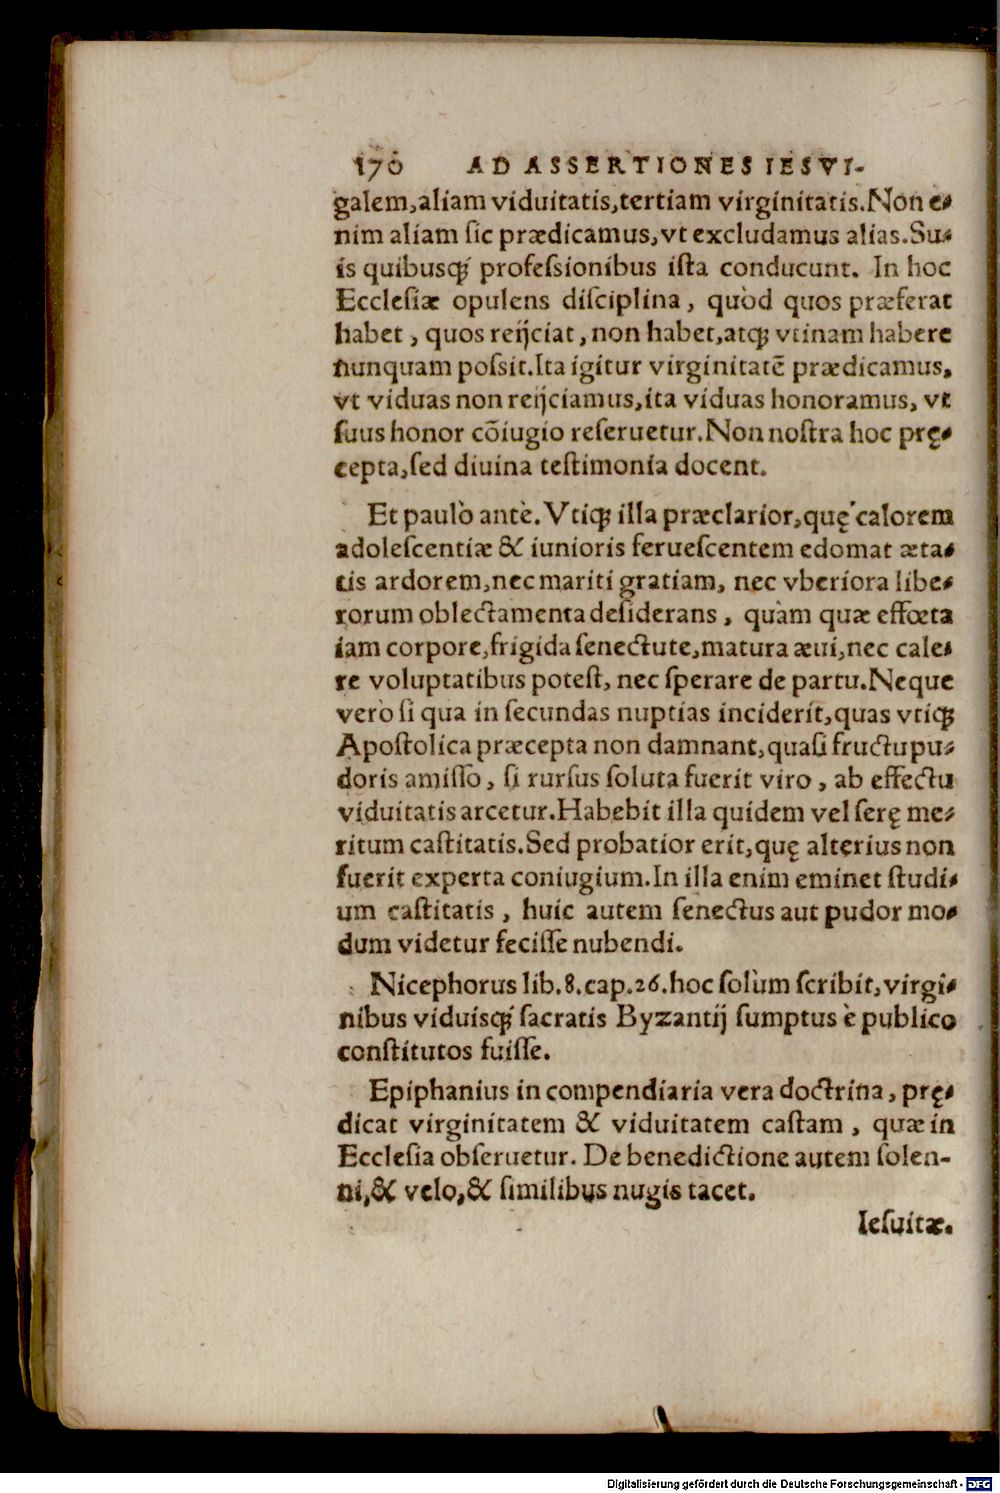 170 AD ASSERTIONES IESVI-
galem,aliam viduitatis,tertiam virginitatis.Non e-
nim aliam ſic prædicamus,vt excludamus alias.Su-
is quibusq́; profeſsionibus iſta conducunt. In hoc
Eccleſiæ opulens diſciplina, quòd quos præferat
habet, quos reijciat, non habet,atq; vtinam habere
nunquam poſsit.Ita igitur virginitatē prædicamus,
vt viduas non reijciamus,ita viduas honoramus, vt
ſuus honor cōiugio reſeruetur.Non noſtra hoc pręe-
cepta,ſed diuina teſtimonia docent.
Et paulò antè. Vtiq; illa præclarior,quę calorem
adoleſcentiæ & iunioris ferueſcentem edomat æta-
tis ardorem,nec mariti gratiam, nec vberiora libe-
rorum oblectamenta deſiderans, quàm quæ effœta
iam corpore,frigida ſenectute,matura æui,nec cale-
re voluptatibus poteſt, nec ſperare de partu.Neque
verò ſi qua in ſecundas nuptias inciderit,quas vtiq;
Apoſtolica præcepta non damnant,quaſi fructu pu-
doris amiſſo, ſi rurſus ſoluta fuerit viro, ab effectu
viduitatis arcetur.Habebit illa quidem vel ſerę me-
ritum caſtitatis.Sed probatior erit,quę alterius non
fuerit experta coniugium.In illa enim eminet ſtudi-
um caſtitatis, huic autem ſenectus aut pudor mo-
dum videtur feciſſe nubendi.
Nicephorus lib.8.cap.26.hoc ſolùm ſcribit,virgi-
nibus viduisq́; ſacratis Byzantij ſumptus è publico
conſtitutos fuiſſe.
Epiphanius in compendiaria vera doctrina, prę-
dicat virginitatem & viduitatem caſtam, quæ in
Eccleſia obſeruetur. De benedictione autem ſolen-
ni,& velo,& ſimilibus nugis tacet.
Ieſuitæ.
Digitalisierung gefördert durch die Deutsche Forschungsgemeinschaft - DFG